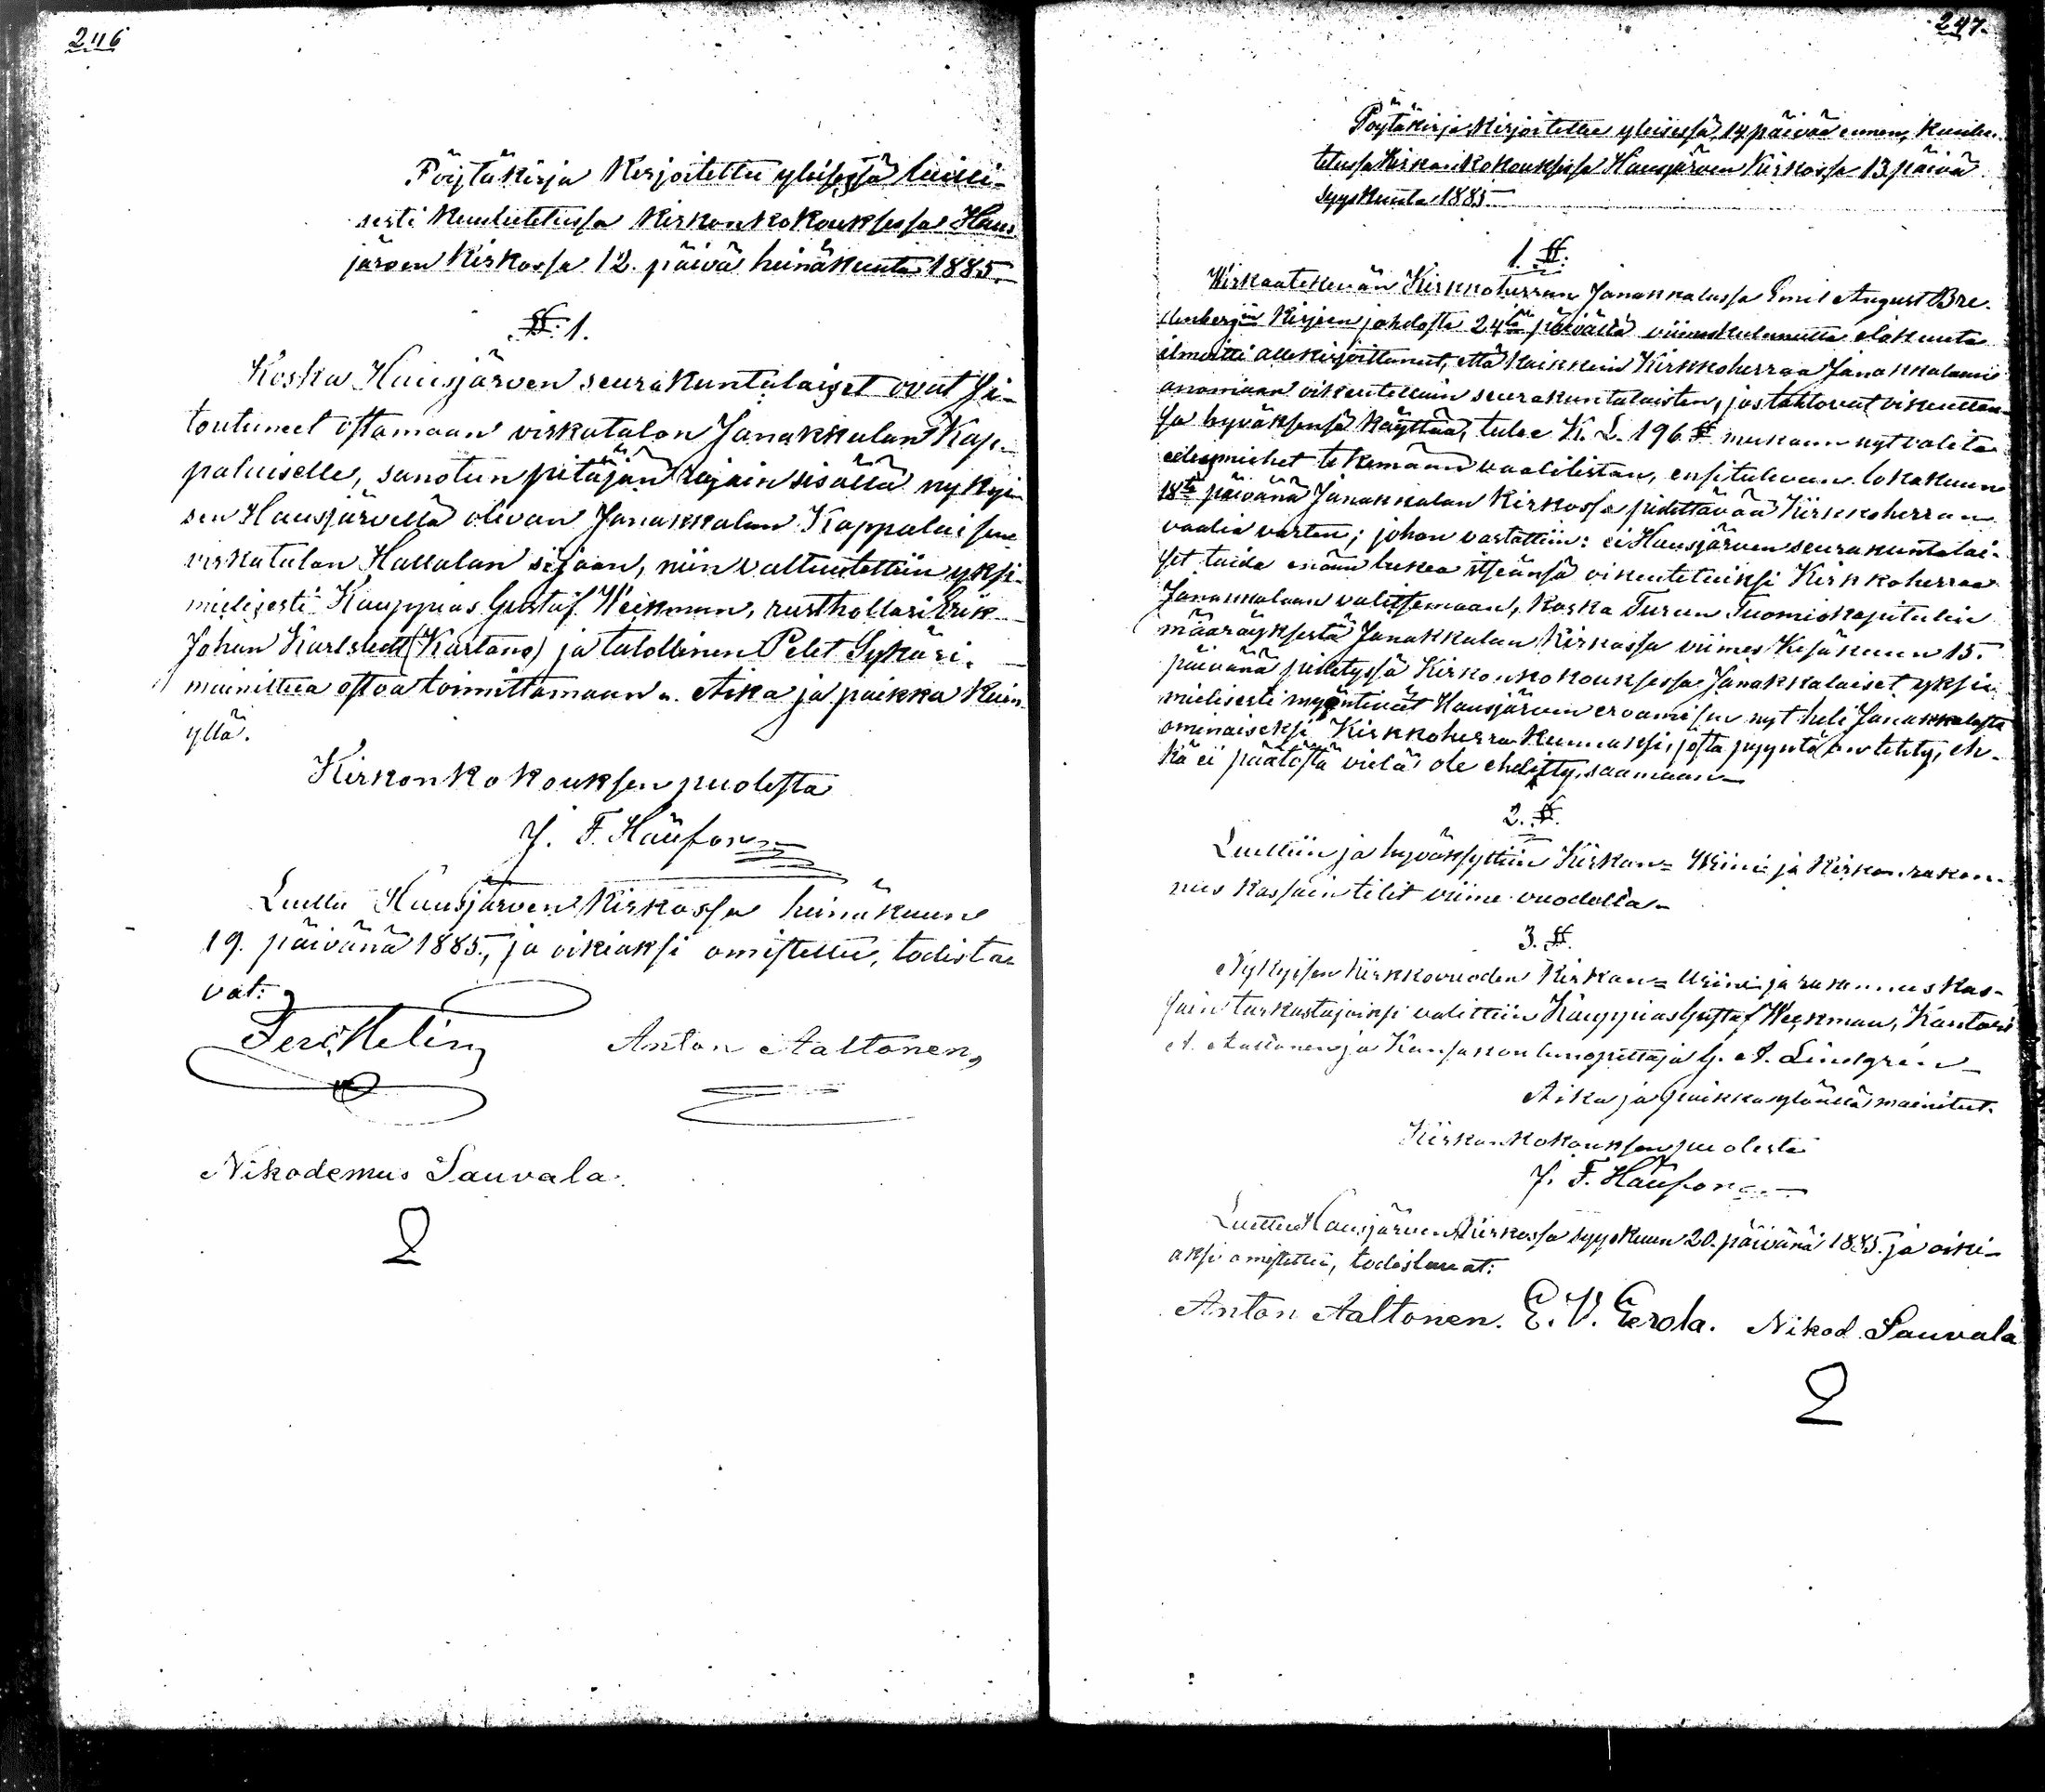 246
Pöytäkirja Kirjoitettu yleisessä lailli-
sesti Kuulutetussa Kirkonkokouksessa Haus
järven Kirkossa 12. päivä heinäkuuta 1885.
§. 1.
Koska Hausjärven seurakuntalaiset ovat si-
toutuneet ostamaan virkatalon Janakkalan Kap-
palaiselle, sanotun pitäjän rajain sisällä nykyi
sen Hausjärvellä olevan Janakkalan Kappalaisen
virkatalon Hallalan sijaan, niin valtuutettiin yksi-
mielisesti Kauppias Gustaf Weckman, rusthollari Erik
Johan Karlstedt (Kartano) ja talollinen Petet Sykäri.
mainittua ostoa toimittamaan. Aika ja paikka Kuin
yllä.
Kirkonkokouksen puolesta
J. F. Häufors
Luettu Hausjärven Kirkossa heinäkuun
19. päivänä 1885, ja oikiaksi omistettu, todista-
vat:
Anton Aaltonen,
Nikodemus Sauvala.
247.
Pöytäkirja Kirjoitettu yleisessä, 14 päivää ennen, kuulu-
tetussa Kirkonkokouksessa Hausjärven Kirkossa 13 päivä
syyskuuta 1885
1. §.
Wirkaatekevän Kirkkoherran Janakkalassa Emil August Bre-
Kirjeen johdosta 24tä päivältä viimekulunutta elokuuta
ilmoitti allekirjoittanut, että kaikkein Kirkkoherraa Janakkalaan
anomaan oikeutettuin seurakuntalaisten, jos tahtovat oikeuttan-
sa hyväksensä käyttää, tulee K. L. 196 § mukaan nyt valita
edesmiehet tekemään vaalilistan, ensitulevan lokakuun
18tä päivänä Janakkalan Kirkossa pidettävää Kirkkoherran
vaalia varten; johon vastattiin: ei Hausjärven seurakuntalai-
set taida enään lukea itseänsä oikeutetuiksi Kirkkoherraa
Janakkalaan valitsemaan, koska Turun Tuomiokapitulin
määräyksestä Janakkalan Kirkossa viimes Kesäkuun 15.
päivänä pidetyssä Kirkonkokouksessa Janakkalaiset yksi-
mielisesti myöntivät Hausjärven eroamisen nyt heti Janakkalasta
ominaiseksi Kirkkoherra Kunnaksi, josta pyyntö on tehty, eh-
kä ei päätöstä vielä ole ehditty saamaan
2. §.
Luettiin ja hyväksyttiin Kirkon- Wiini- ja Kirkonraken-
nus kassain tilit viime vuodelta
3. §.
Nykyisen Kirkkovuoden Kirkon- Wiini- ja rakennuskas-
sain tarkastajaiksi valittiin Kauppias Gustaf Weckman, Kantori
A. Aaltonen ja Kansakoulunopettaja G. A. Lindgrén
Aika ja paikka ylöällä mainitut.
Kirkonkokouksen puolesta
J. F. Häufors
Luettu Hausjärven Kirkossa syyskuun 20. päivänä 1885. ja oiki-
aksi omistettu, todistavat:
Anton Aaltonen. E. V. Eerola. Nikod Sauvala